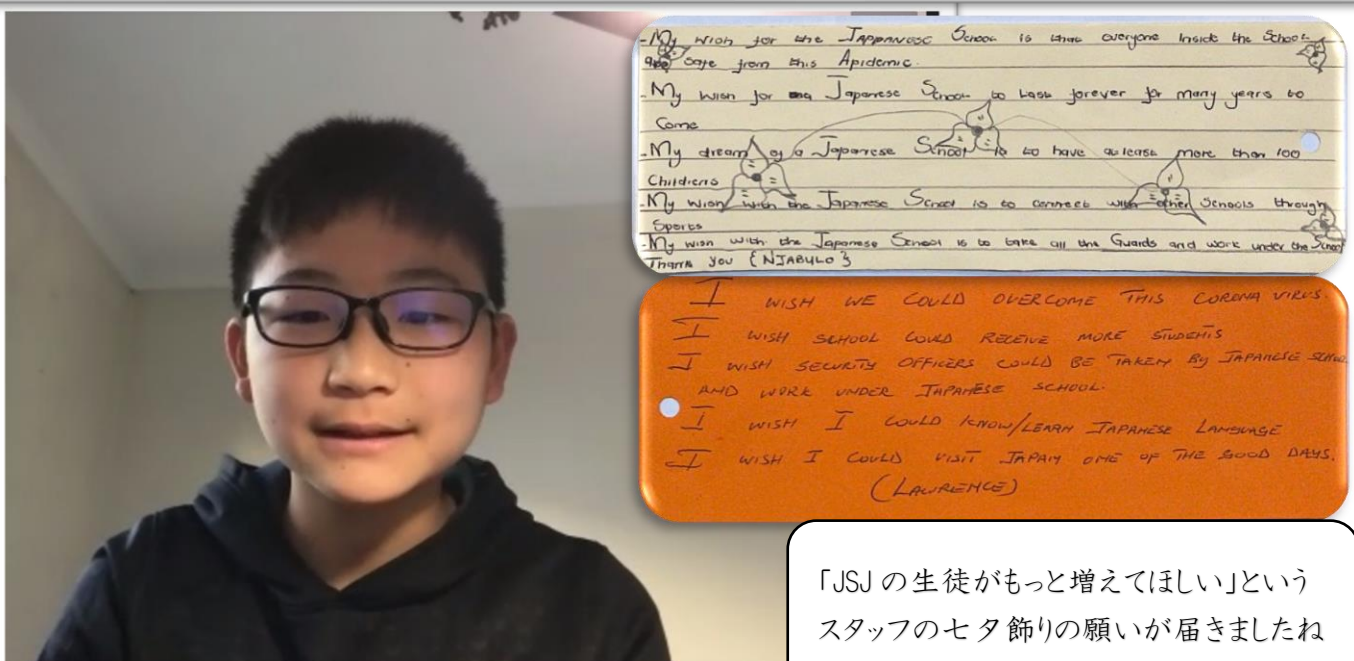 -My wish for the JAPPANESE School is that everyone inside the School
are safe from this Apidemic.
-My wish for Japanese School to last forever for many years to
Come
-My dream of a Japanese School is to have atleast more than 100
Childrens
-My wish with the Japanese School is to connect with other Schools through
Sports
-My wish with the Japanese School is to take all the Guards and work under the School
Thank you {NJABULO}
I WISH WE COULD OVERCOME THIS CORONA VIRUS.
I WISH SCHOOL COULD RECEIVE MORE STUDENTS
I WISH SECURITY OFFICERS COULD BE TAKEN BY JAPANESE SCHOOL
AND WORK UNDER JAPANESE SCHOOL.
I WISH I COULD KNOW/LEARN JAPANESE LANGUAGE
I WISH I COULD VISIT JAPAN ONE OF THE GOOD DAYS.
(LAWRENCE)
「JSJの生徒がもっと増えてほしい」という
スタッフの七夕飾りの願いが届きましたね